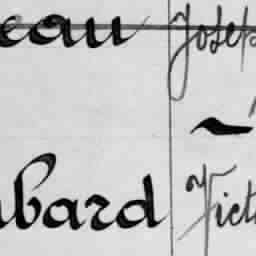 eau Josep
~
bard Vict